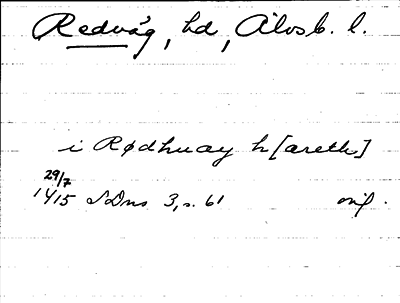 Redvåg, hd, Älvsb. l.
i Rødhuay h[areth]
29/7
1415 SDns 3, s. 61 orig.